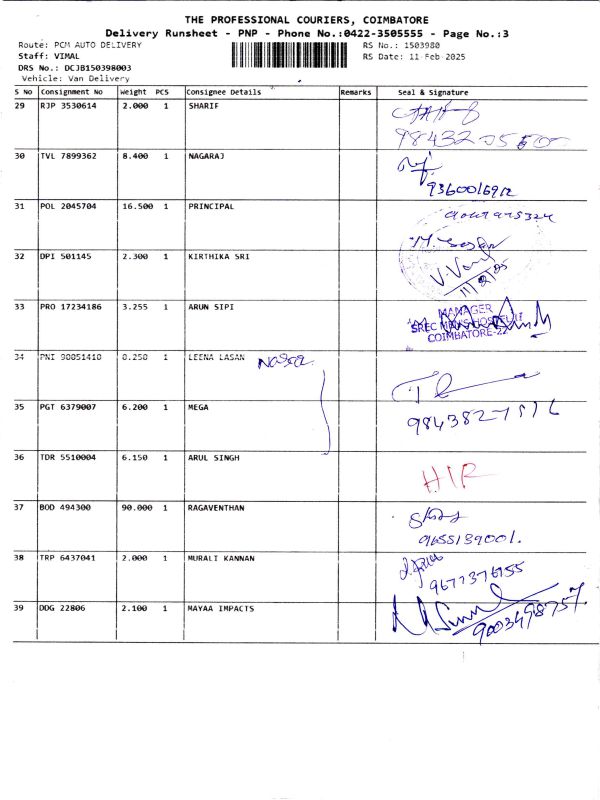 THE PROFESSIONAL COURIERS, COIMBATORE
Delivery Runsheet - PNP - Phone No.:0422-3505555 - Page No.:3
Route: PCM AUTO DELIVERY
RS No.: 1503980
Staff: VIMAL
RS Date: 11-Feb-2025
DRS No.: DCJB150398003
Vehicle: Van Delivery
S No Consignment No Weight PCS Consignee Details Remarks Seal & Signature
29 RJP 3530614 2.000 1 SHARIF
30 TVL 7899362 8.400 1 NAGARAJ
9360016912
31 POL 2045704 16.500 1 PRINCIPAL
32 DPI 501145 2.300 1 KIRTHIKA SRI
11/2/25
33 PRO 17234186 3.255 1 ARUN SIPI
MANAGER
SREC MEN'S HOSTEL
COIMBATORE-22
34 PNI 90051410 0.250 1 LEENA LASAN
35 PGT 6379007 6.200 1 MEGA
36 TDR 5510004 6.150 1 ARUL SINGH
37 BOD 494300 90.000 1 RAGAVENTHAN
9655139001.
38 TRP 6437041 2.000 1 MURALI KANNAN
9677376155
39 DDG 22806 2.100 1 MAYAA IMPACTS
9003498757